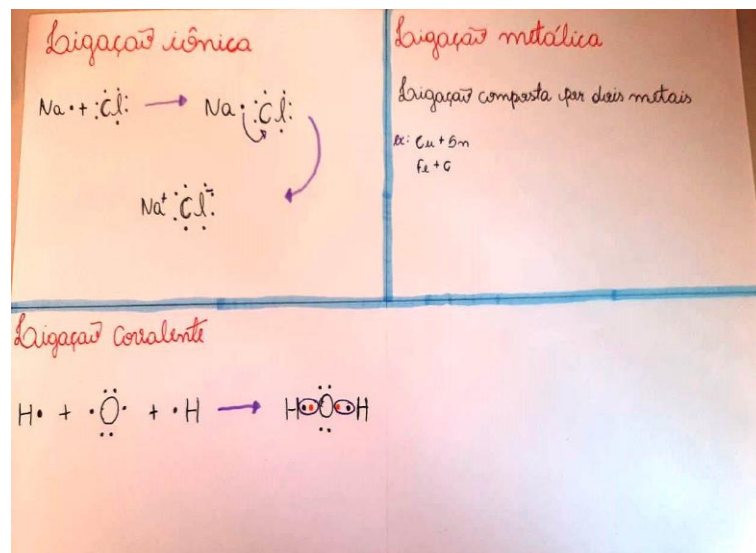 Ligação iônica
Na • + :Cl: → Na • :Cl:
Na⁺ :Cl:⁻
Ligação metálica
Ligação composta por dois metais
ex: Cu + Sn
Fe + C
Ligação covalente
H• + •O• + •H → H••O••H